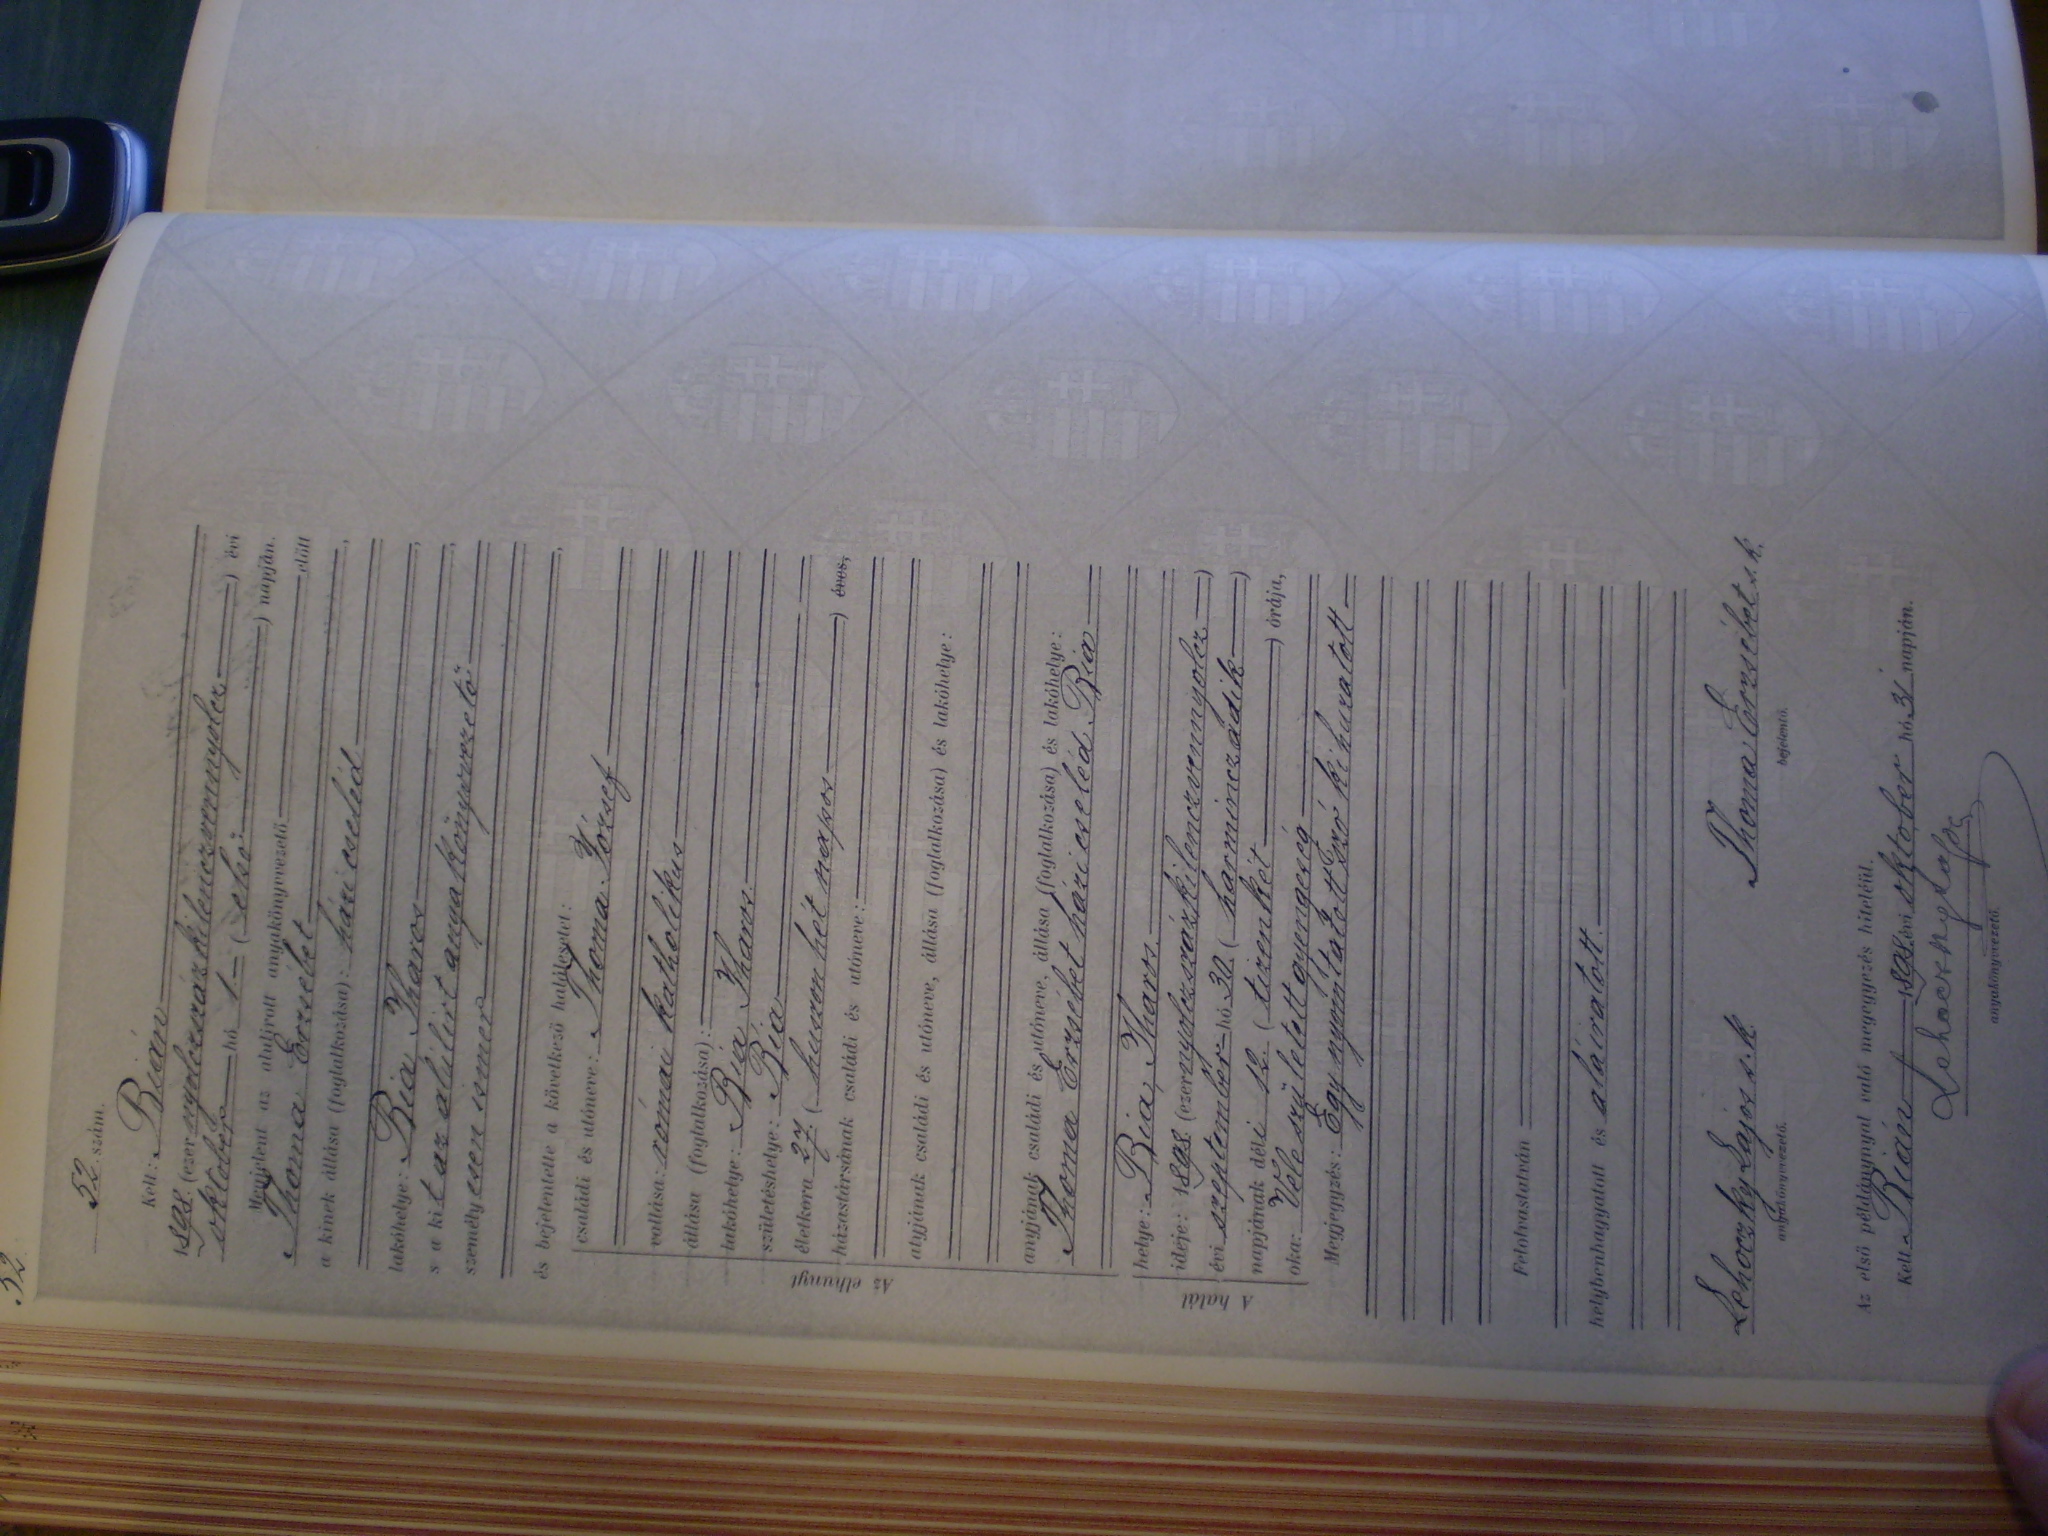 52.
52. szám.
Kelt: Bián
1898. (ezernyolczszázkilenczvennyolcz) évi
október hó 1 (első) napján.
Megjelent az alulirott anyakönyvvezető előtt
Thoma Erzsébet
a kinek állása (foglalkozása): házi cseléd
lakóhelye: Bia
s a kit az alulirt anyakönyvvezető
személyesen ismer
és bejelentette a következő halálesetet:
Az elhunyt
családi és utóneve: Thoma József
vallása: római katholikus
állása (foglalkozása):
lakóhelye: Bia
születéshelye: Bia
életkora 27. (huszonhét napos) éves,
házastársának családi és utóneve:
atyjának családi és utóneve, állása (foglalkozása) és lakóhelye:
anyjának családi és utóneve, állása (foglalkozása) és lakóhelye:
Thoma Erzsébet házi cseléd Bia
A halál
helye: Bia,
ideje: 1898. (ezernyolczszázkilenczvennyolcz)
évi szeptember hó 30. (harminczadik)
napjának déli 12. (tizenkét) órája,
oka: Vele született gyengeség
Megjegyzés: Egy nyomtatott szó kihuzatott
Felolvastatván
helybenhagyatott és aláiratott.
Lehoczky Lajos s.k. Thoma Erzsébet s.k.
anyakönyvvezető. bejelentő.
Az első példánynyal való megegyezés hiteléül.
Kelt Bián 1898 évi október hó 31 napján.
Lehoczky Lajos
anyakönyvvezető.